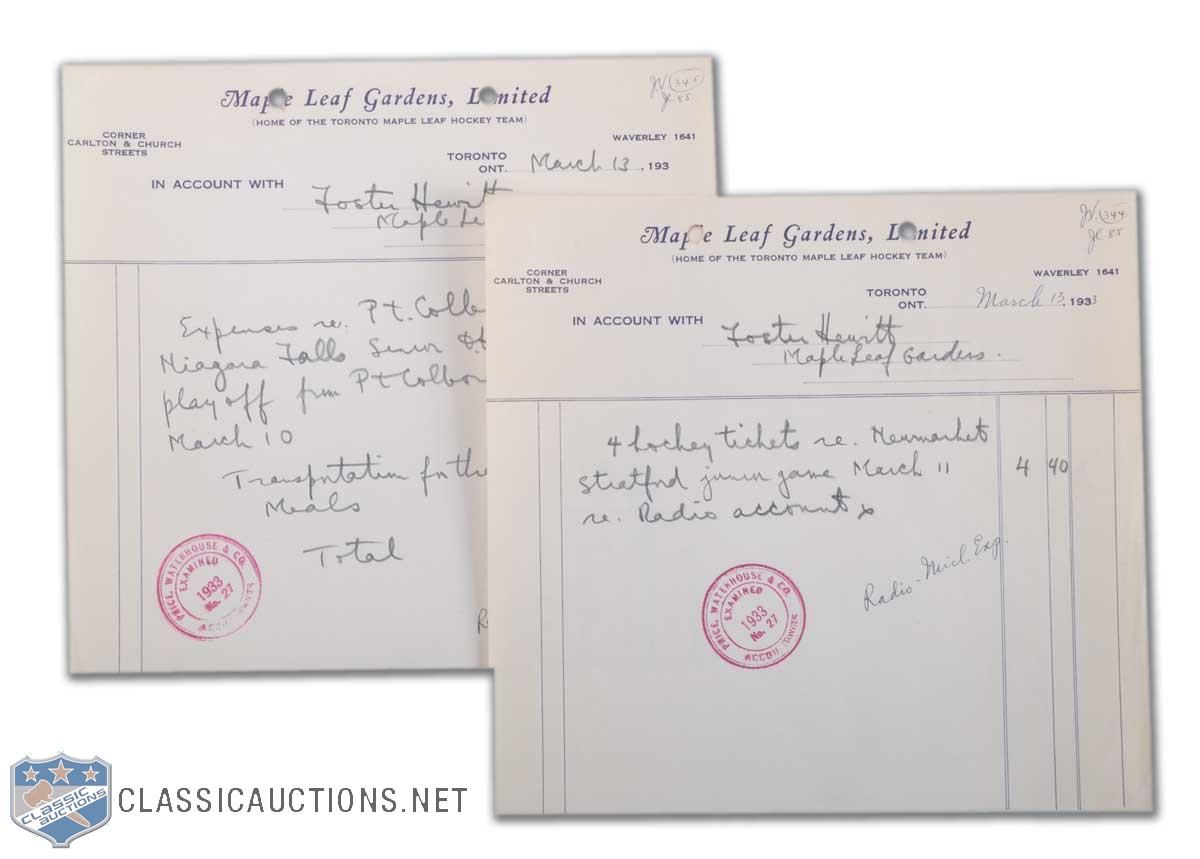 Maple Leaf Gardens, Limited
(HOME OF THE TORONTO MAPLE LEAF HOCKEY TEAM)
JV. 345
JC 85
CORNER
CARLTON & CHURCH
STREETS
WAVERLEY 1641
TORONTO
ONT. March 13, 193
IN ACCOUNT WITH Foster Hewitt
Maple Le
Expenses re. Pt. Colb
Niagara Falls Senior
playoff from Pt Colbor
March 10
Transportation for th
Meals
Total
PRICE, WATERHOUSE & CO.
EXAMINED
1933
No. 27
ACCOUNTANTS
Maple Leaf Gardens, Limited
(HOME OF THE TORONTO MAPLE LEAF HOCKEY TEAM)
JV. 344
JC 85
CORNER
CARLTON & CHURCH
STREETS
WAVERLEY 1641
TORONTO
ONT. March 13, 1933
IN ACCOUNT WITH Foster Hewitt
Maple Leaf Gardens.
4 hockey tickets re. Newmarket
Stratford junior game March 11 4 40
re. Radio account
Radio - Micl. Exp.
PRICE, WATERHOUSE & CO.
EXAMINED
1933
No. 27
ACCOUNTANTS
CLASSIC
AUCTIONS
CLASSICAUCTIONS.NET